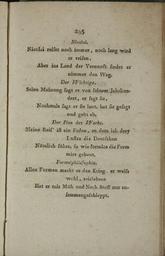 295
Nicolai.
Nicolai reiset noch immer, noch lang wird
er reisen,
Aber ins Land der Vernunft findet er
nimmer den Weg.
Der Wichtige.
Seine Meinung sagt er von seinem Jahrhun-
dert, er sagt sie,
Nochmals sagt er sie laut, hat sie gesagt
und geht ab.
Der Plan des Werks.
Meine Reis' ist ein Faden, an dem ich drey
Lustra die Deutschen
Nützlich führe, so wie formlos die Form
mirs gebeut.
Formalphilosophie.
Allen Formen macht er den Krieg, er weiß
wohl, zeitlebens
Hat er mit Müh und Noth Stoff nur zu-
sammengeschleppt.